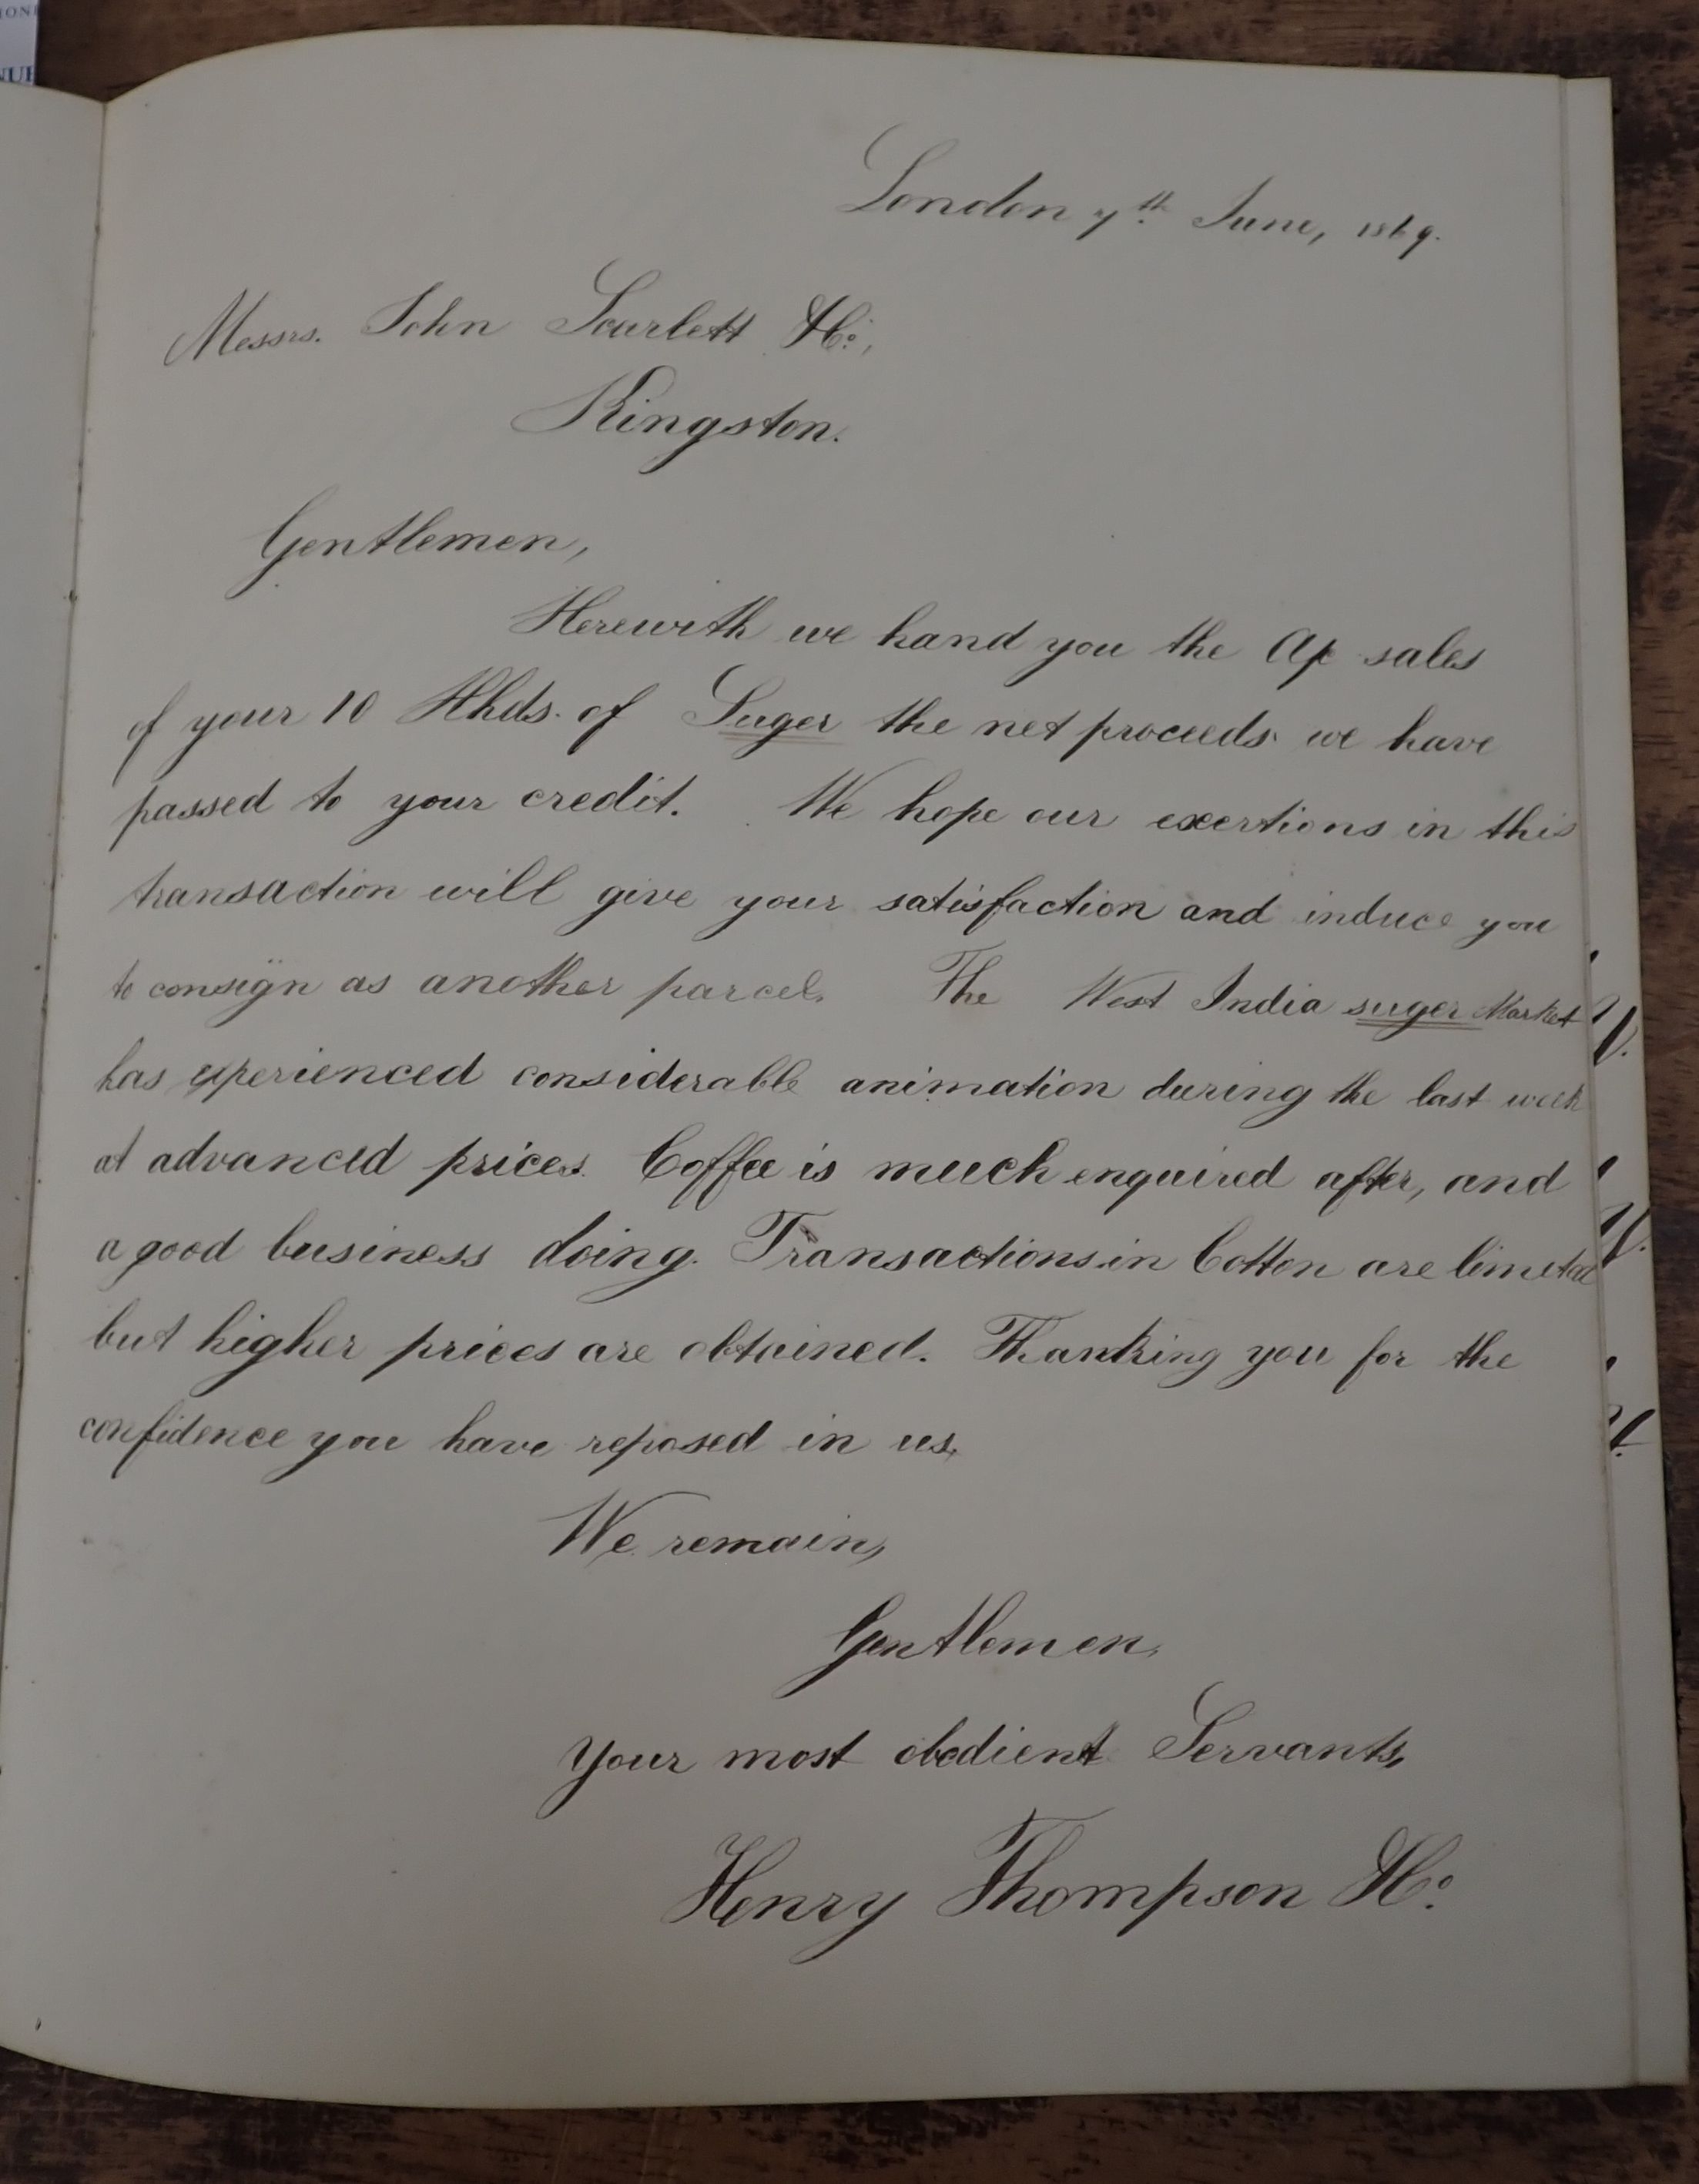 London 7th June, 1869.
Messrs. John Scarlett & Co.,
Kingston.
Gentlemen,
Herewith we hand you the A/c sales
of your 10 Hhds. of Suger the net proceeds we have
passed to your credit. We hope our exertions in this
transaction will give your satisfaction and induce you
to consign as another parcel. The West India suger Market
has experienced considerable animation during the last week
at advanced prices. Coffee is much enquired after, and
a good business doing. Transactions in Cotton are limeted
but higher prices are obtained. Thanking you for the
confidence you have reposed in us,
We remain,
Gentlemen,
Your most obedient Servants,
Henry Thompson & Co.